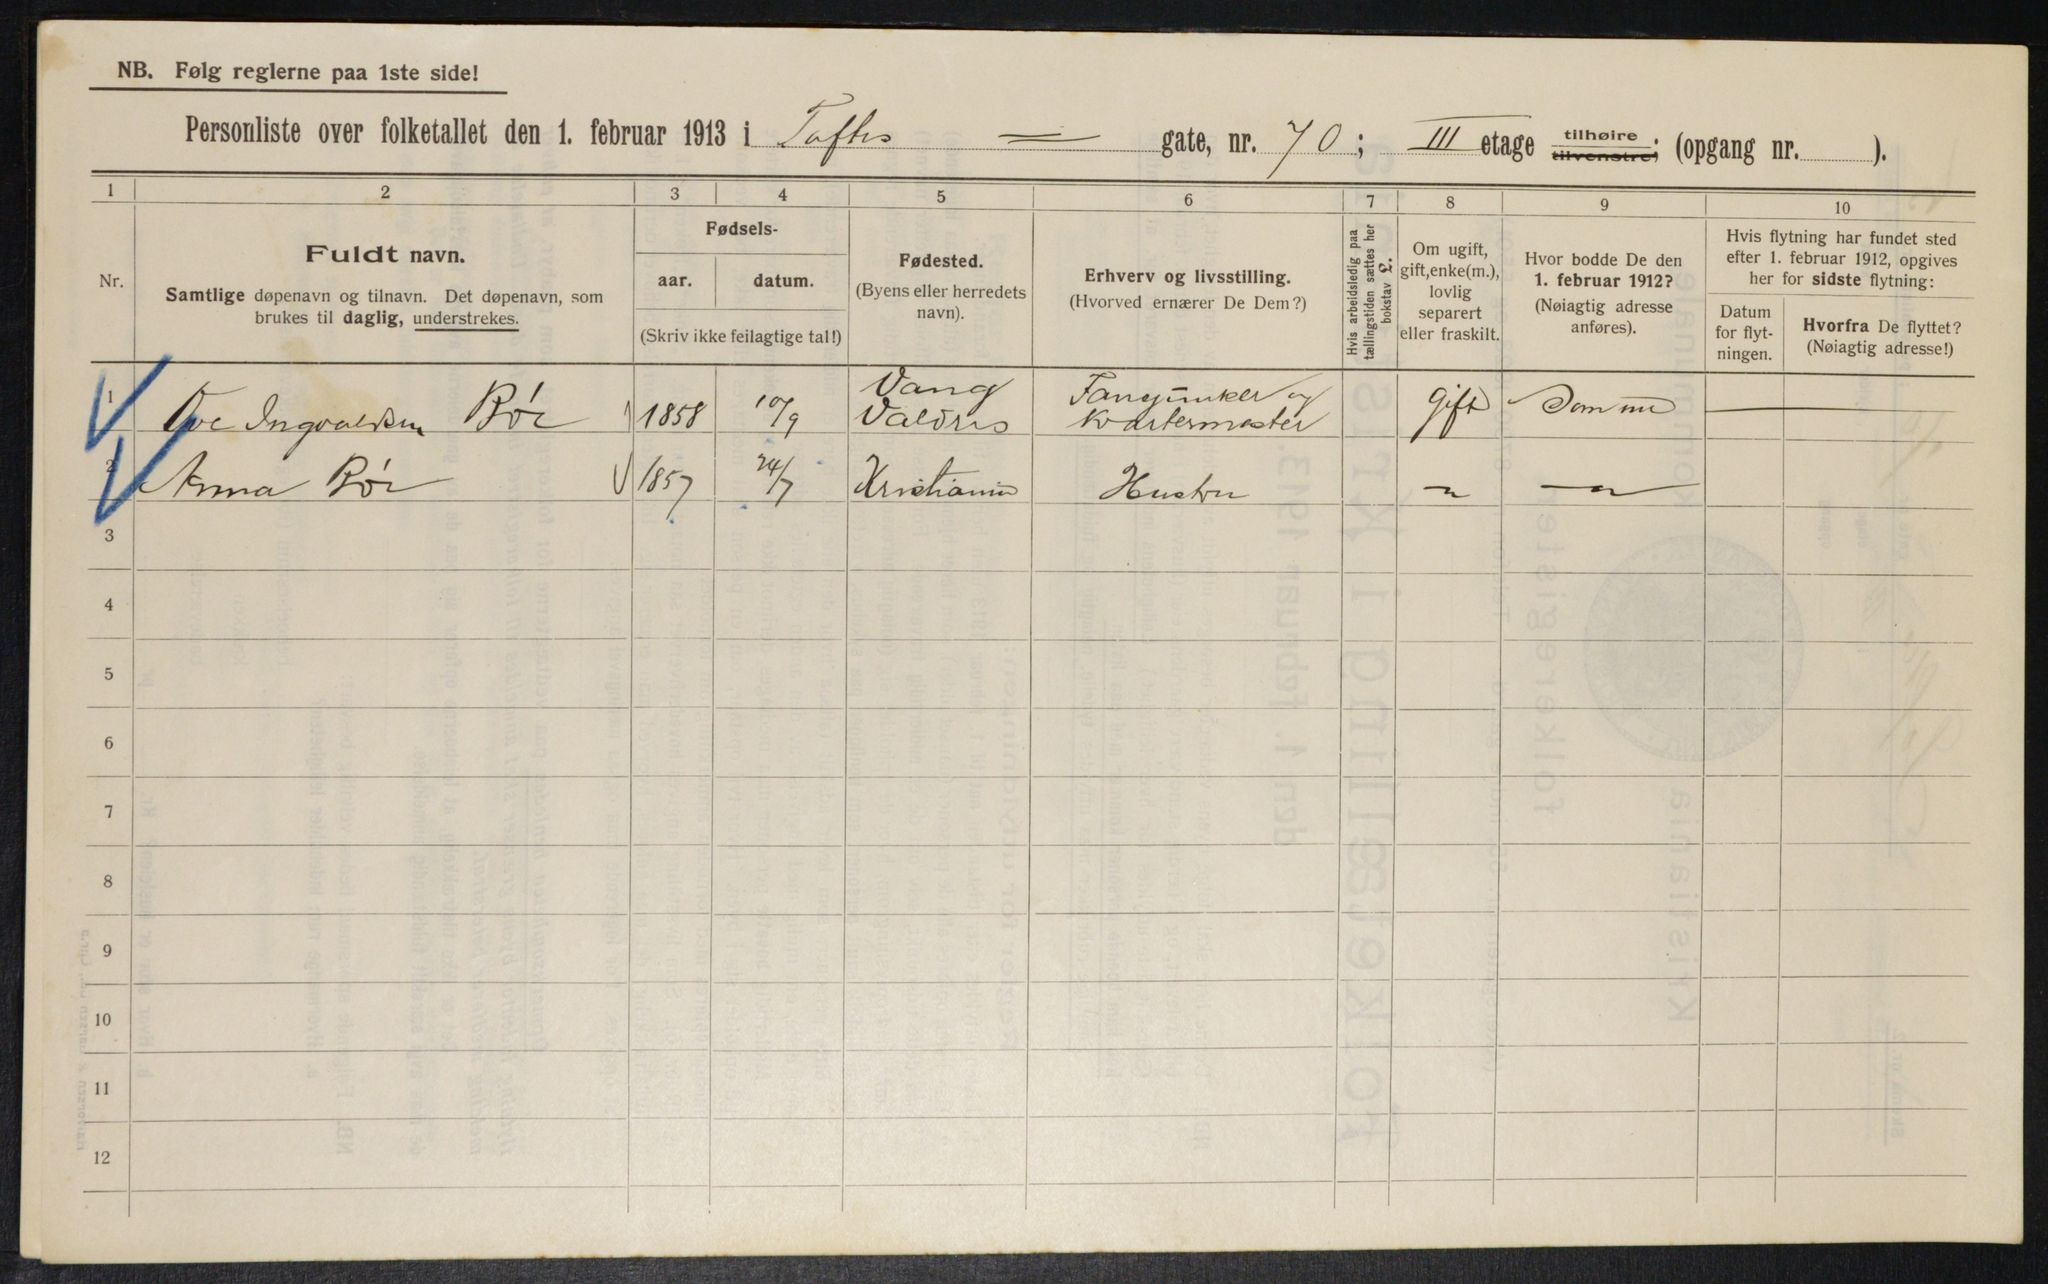 NB. Følg reglerne paa 1ste side!
Personliste over folketallet den 1. februar 1913 i Toftes gate, nr. 70; III etage tilhøire tilvenstre; (opgang nr. ).
1 2 3 4 5 6 7 8 9 10
Nr.
Fuldt navn.
Samtlige døpenavn og tilnavn. Det døpenavn, som
brukes til daglig, understrekes.
Fødsels-
aar. datum.
(Skriv ikke feilagtige tal!)
Fødested.
(Byens eller herredets
navn).
Erhverv og livsstilling.
(Hvorved ernærer De Dem?)
Hvis arbeidsledig paa
tællingstiden sættes her
bokstav £.
Om ugift,
gift, enke(m.),
lovlig
separert
eller fraskilt.
Hvor bodde De den
1. februar 1912?
(Nøiagtig adresse
anføres).
Hvis flytning har fundet sted
efter 1. februar 1912, opgives
her for sidste flytning:
Datum
for flyt-
ningen.
Hvorfra De flyttet?
(Nøiagtig adresse!)
1 Ove Ingvaldsen Bøe 1858 10/9 Vang
Valdres Fanejunker og
Kvartermester Gift Samme
2 Anna Bøe 1857 24/7 Kristiania Hustru
3
4
5
6
7
8
9
10
11
12